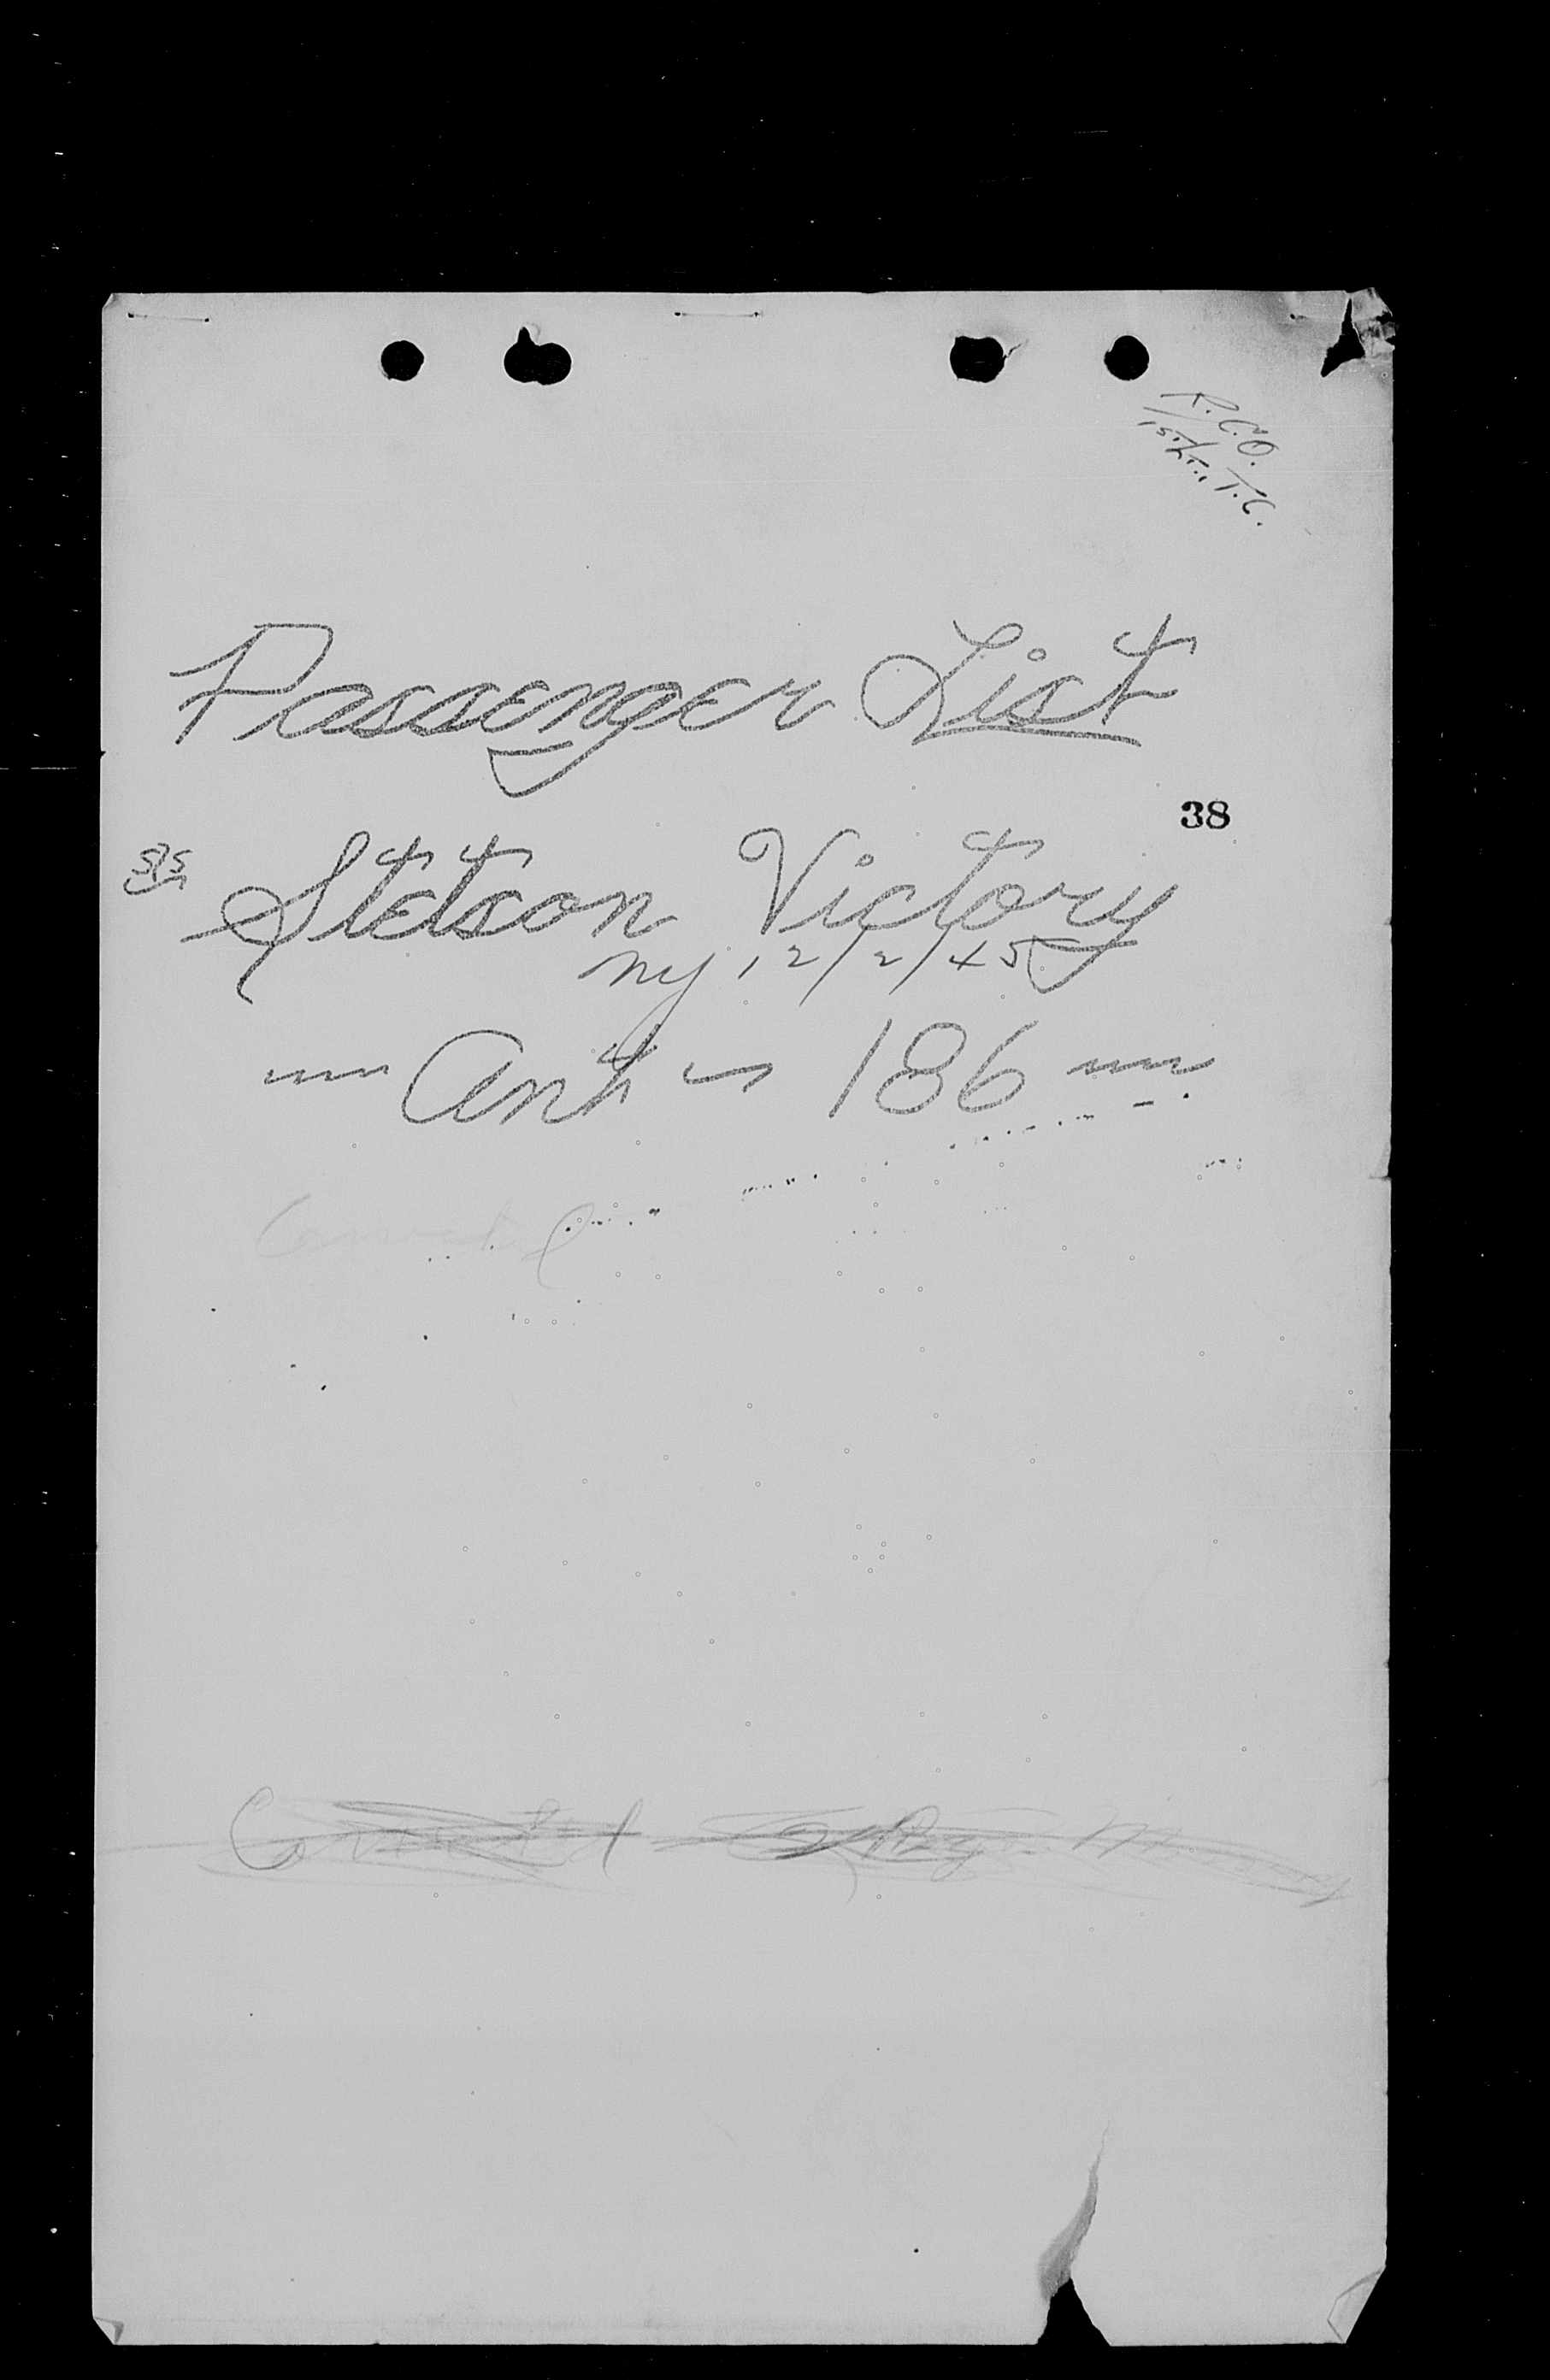 R.C.O.
T.C.
Passenger List
38
S/S Stetson Victory
NY 12/2/45
Ant 186